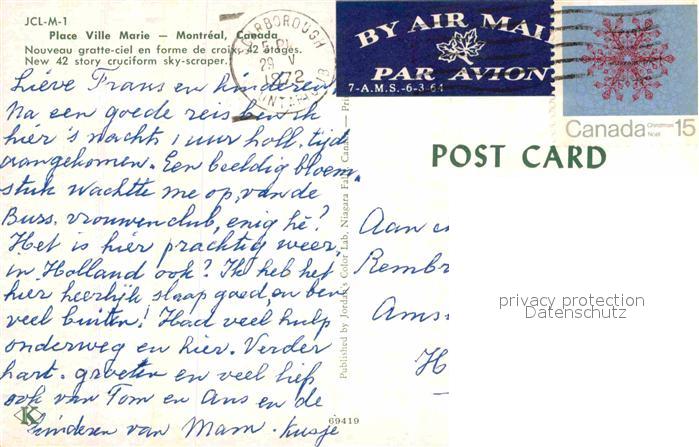 JCL-M-1
Place Ville Marie — Montréal, Canada
Nouveau gratte-ciel en forme de croix, 42 étages.
New 42 story cruciform sky-scraper.
SCARBOROUGH
29 V
1972
ONTARIO
BY AIR MAIL
PAR AVION
7-A.M.S.-6-3-64
Canada Christmas Noël 15
POST CARD
Lieve Frans en kinderen,
Na een goede reis ben ik
hier 's nachts 1 uur holl. tijd
aangekomen. Een beeldig bloem
stuk wachtte me op, van de
Buss. vrouwenclub, enig hè?
Het is hier prachtig weer,
in Holland ook? Ik heb het
hier heerlijk slaap goed, en ben
veel buiten! Had veel hulp
onderweg en hier. Verder
hart. groeten en veel liefs
ook van Tom en Ans en de
kinderen van Mam. Kusje
Published by Jordan's Color Lab, Niagara Falls, Canada — Pri
69419
K
Aan
Rembr
Ams
H
privacy protection
Datenschutz